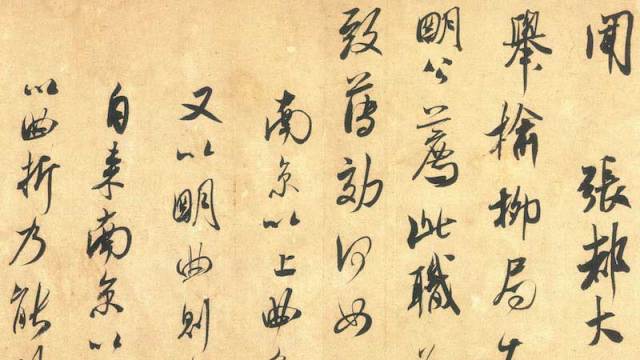 聞 張都大
舉榆柳局
明公薦此職
致薄効何如
南京以上曲
又以明曲則
自来南京以
以曲折乃能